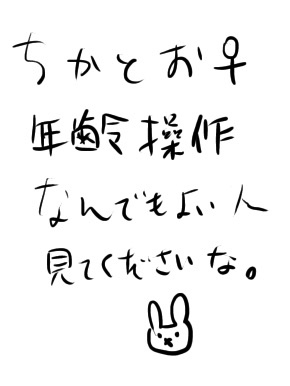 ちかとお♀
年齢操作
なんでもよい人
見てくださいな。